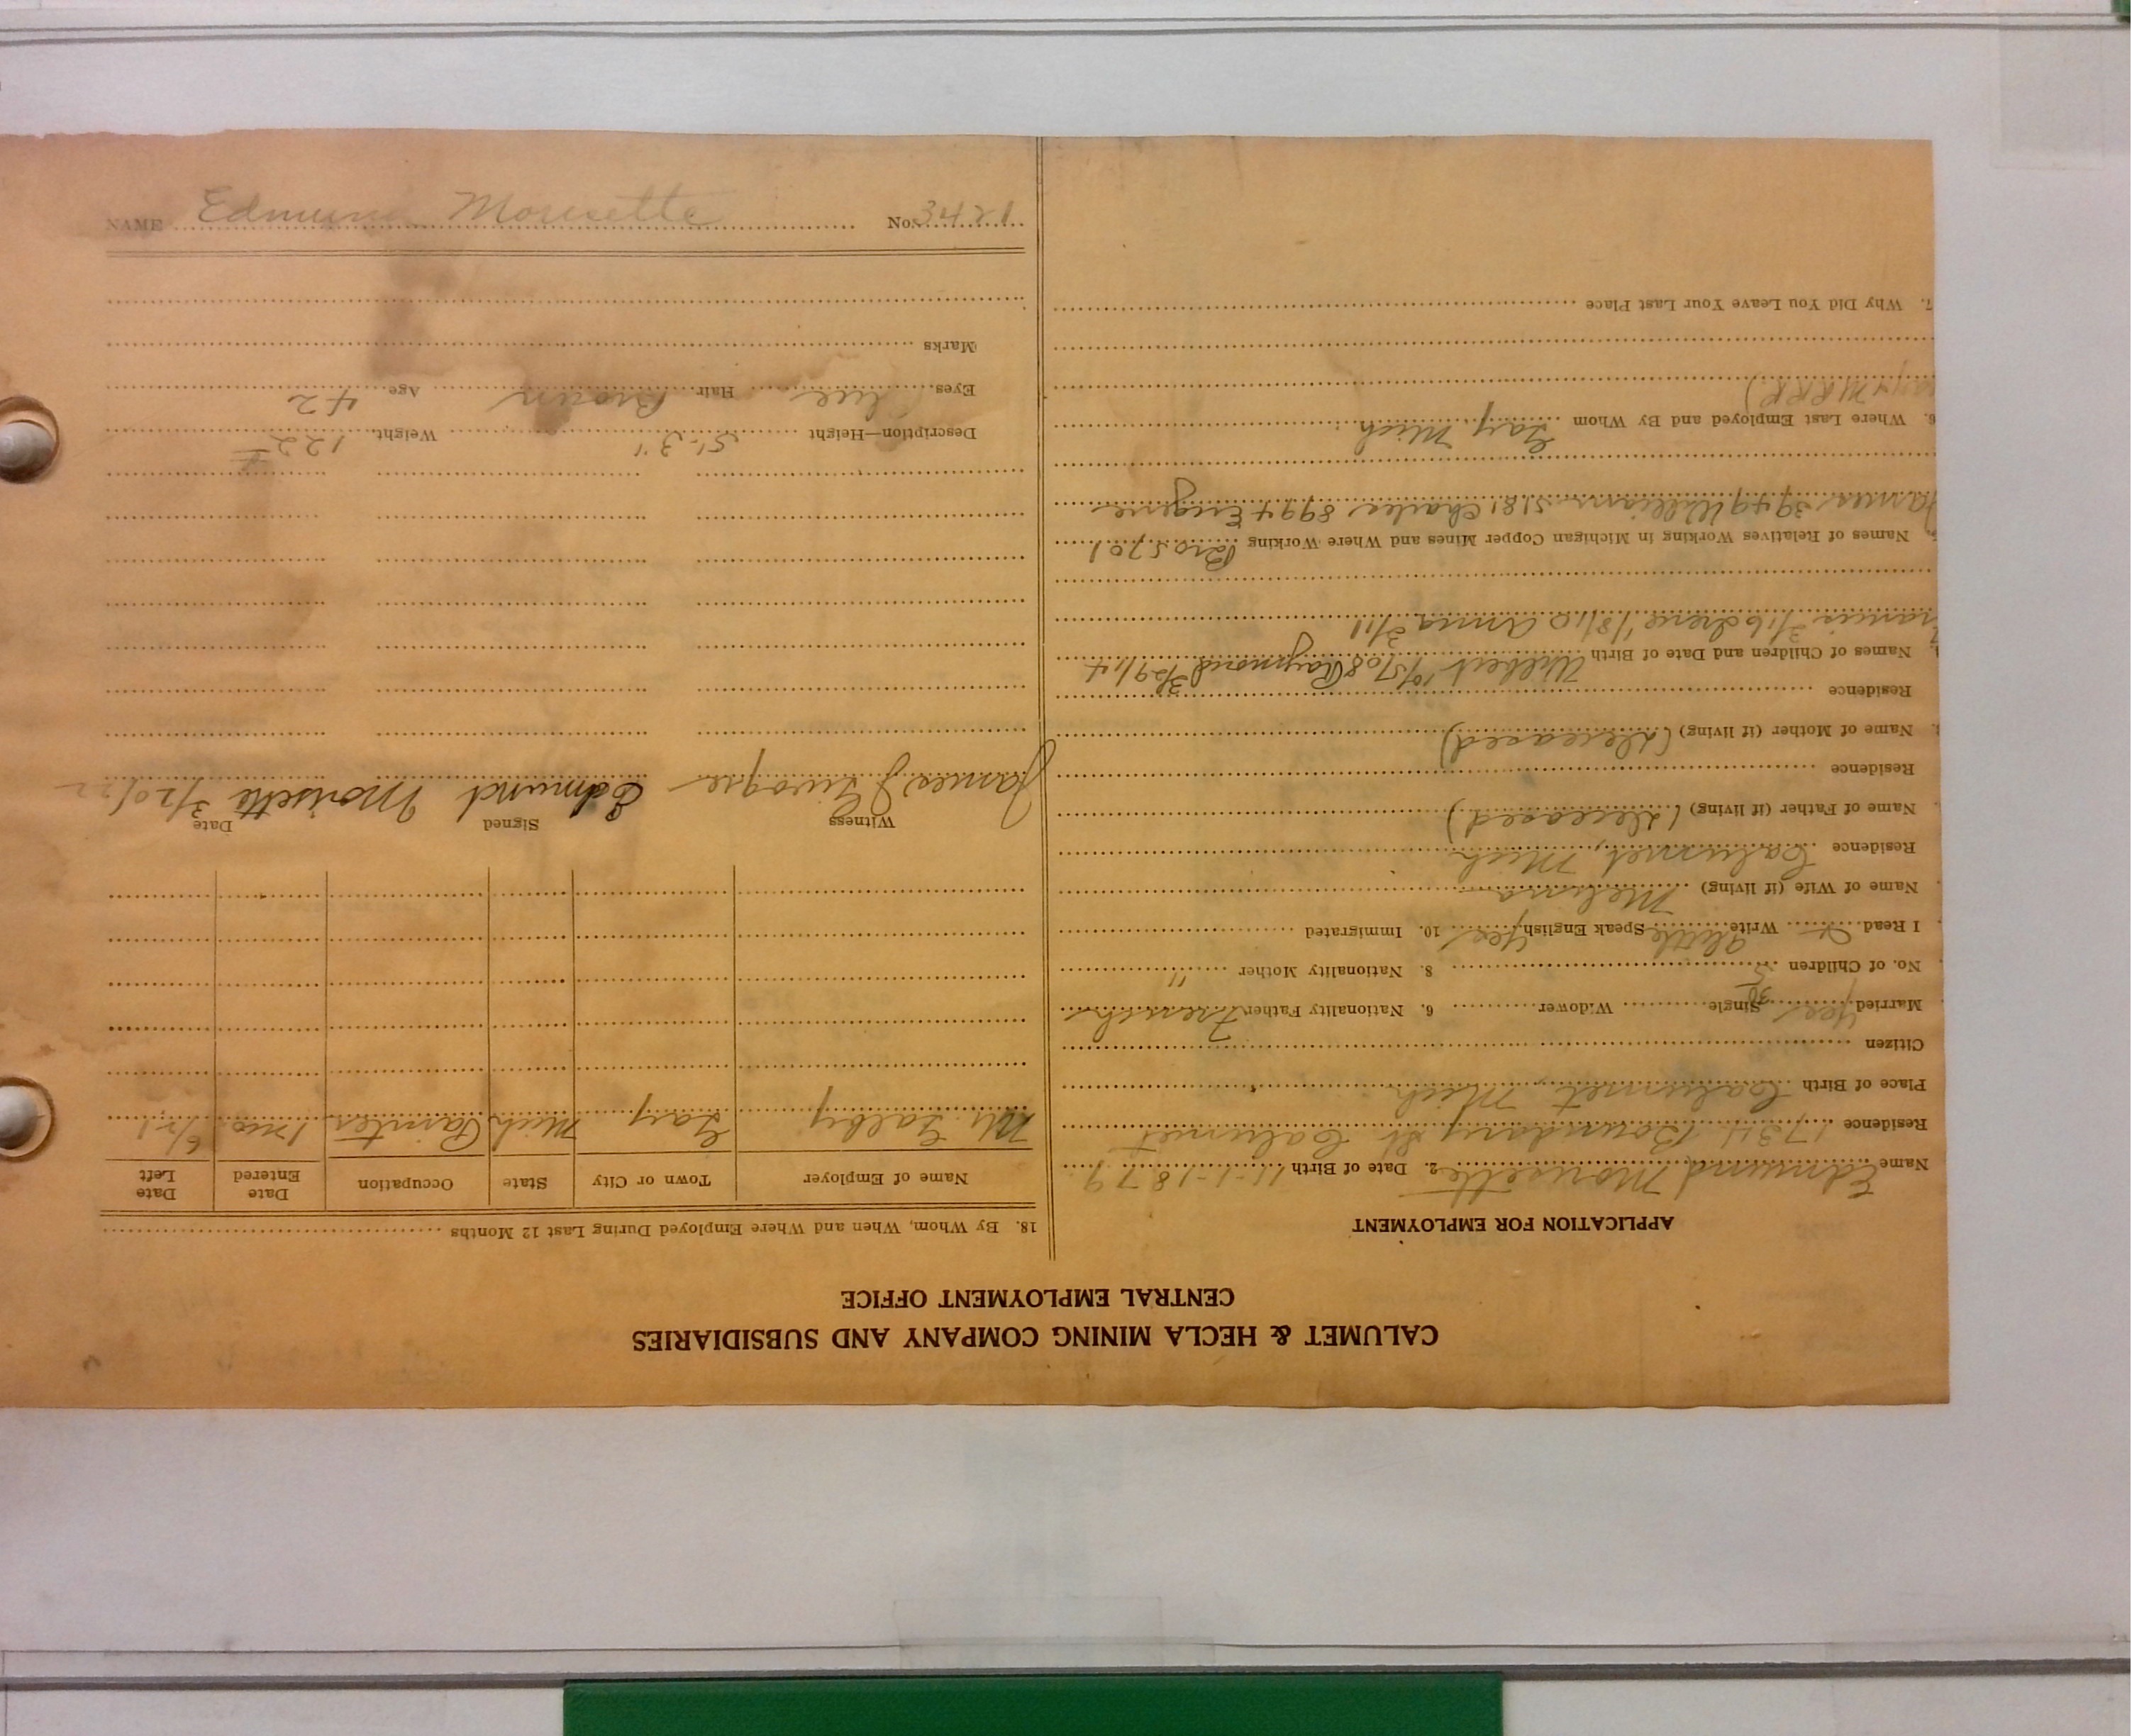 CALUMET & HECLA MINING COMPANY AND SUBSIDIARIES
CENTRAL EMPLOYMENT OFFICE
APPLICATION FOR EMPLOYMENT
Name Edmund Morisette 2. Date of Birth 11-1-1879
Residence 1731 Boundary St Calumet
Place of Birth Calumet, Mich
Citizen
Married yes Single Widower 6. Nationality Father French
No. of Children 5 8. Nationality Mother "
I Read Write a little Speak English yes 10. Immigrated
Name of Wife (if living) Melina
Residence Calumet, Mich
Name of Father (if living) (deceased)
Residence
Name of Mother (if living) (deceased)
Residence
Names of Children and Date of Birth Wilbert 10/5/08 Raymond 3/29/14
3/16 Irene 1/8/10 Anna 3/11
Names of Relatives Working in Michigan Copper Mines and Where Working Bro 5701
James 3949 William 5181 Charles 8994 Eugene
6. Where Last Employed and By Whom Gay, Mich
7. Why Did You Leave Your Last Place
18. By Whom, When and Where Employed During Last 12 Months
Name of Employer Town or City State Occupation Date Entered Date Left
Mr. Gay Mich Painter 1 mo. 6/21
Witness Signed Date
James J Edmund Morisette 3/20/22
Description—Height 5'-3" Weight 122
Eyes blue Hair Brown Age 42
Marks
NAME Edmund Morisette No. 3421